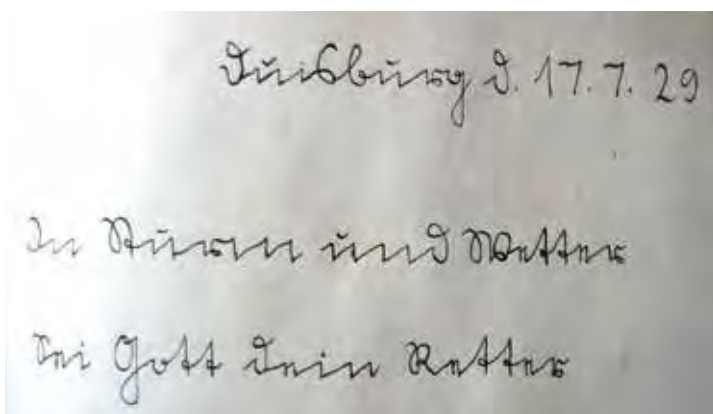 Duisburg d. 17.7.29
In Sturm und Wetter
Sei Gott dein Retter